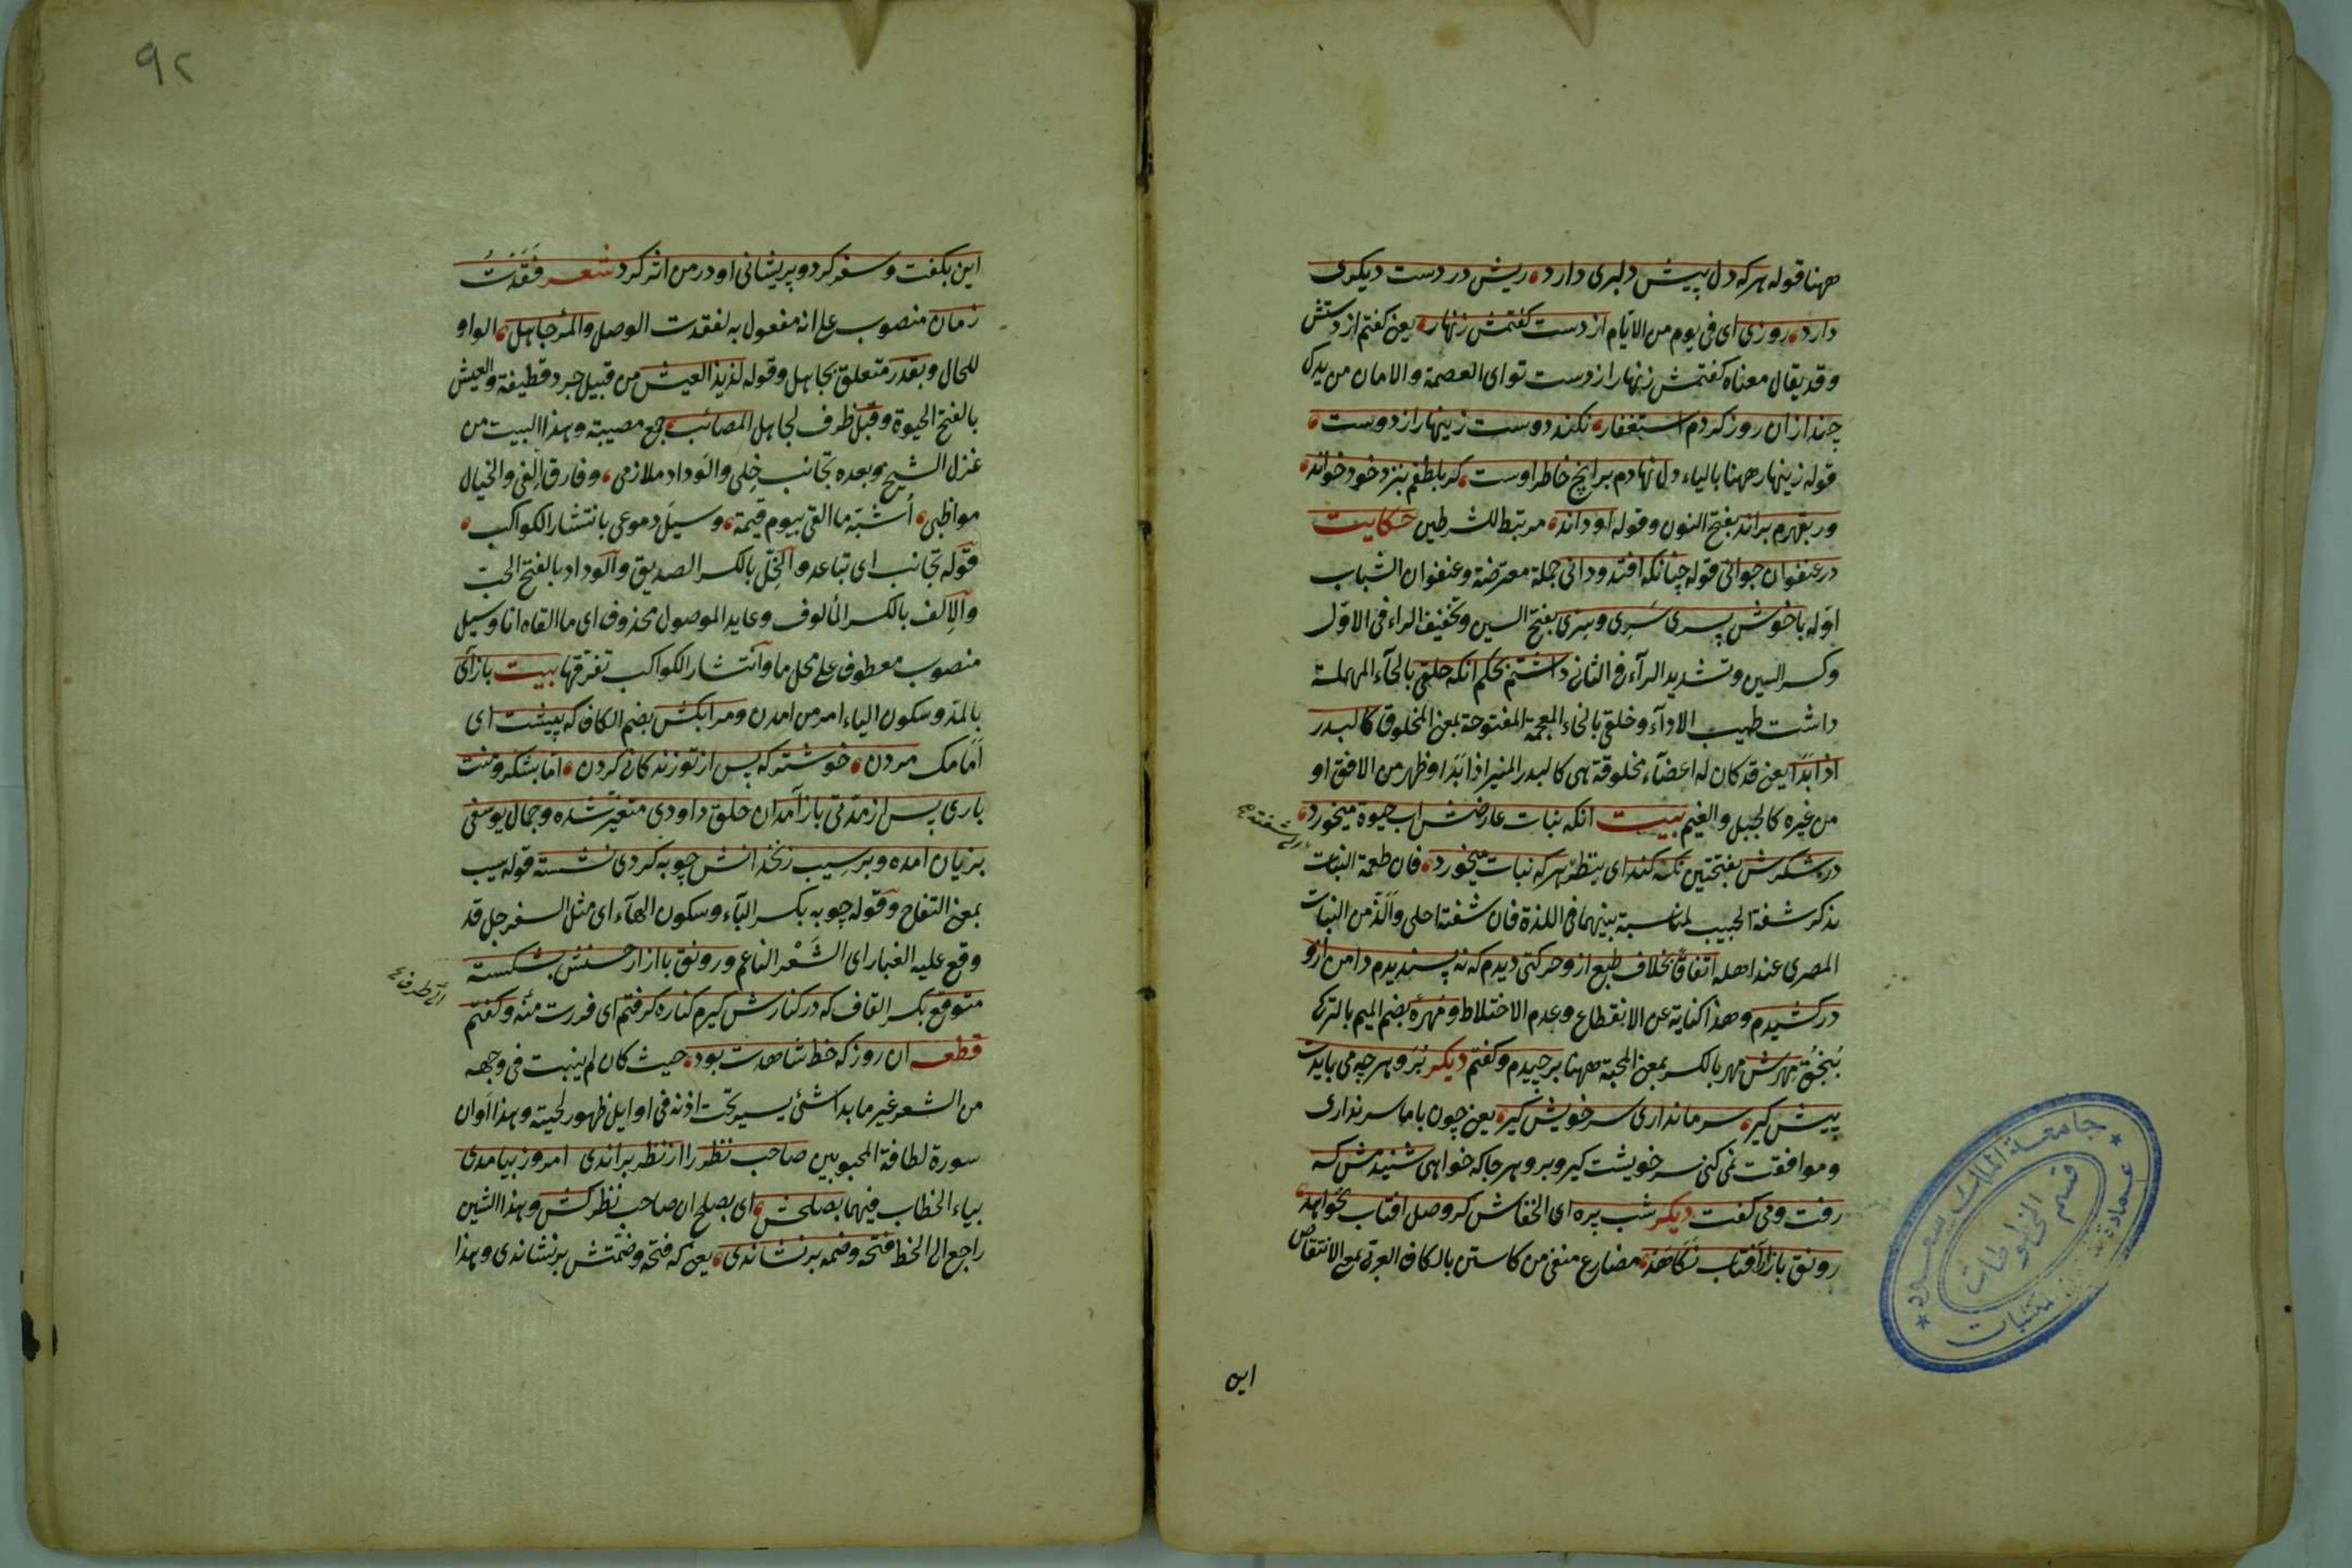 ههنا قوله هركه دل پيش دلبرى دارد ريش در دست ديكرى
دارد روزى اى فى يوم من الايام از دست كفتمش زنهار يعنى كفتم از دستش
وقد يقال معناه كفتمش زنهار از دست تو اى العصمة والامان من يدك
چند ازان روز كردم استغفار نكند دوست زينهار از دوست
قوله زينهار ههنا بالياء دل نهادم بر انچ خاطر اوست كر بلطفم بنزد خود خواند
ور بقهرم براند بفتح النون وقوله او داند مرتبط للشرطين حكايت
در عنفوان جوانى قوله چنانكه افتد ودانى جملة معترضة وعنفوان الشباب
اوله با خوش پسرى سرى وسرى بفتح السين وتخفيف الراء فى الاول
وكسر السين وتشديد الرآء فى الثانى داشتم بحكم انكه حلقى بالحآء المهملة
داشت طيب الادآء وخلقى بالخاء المعجمة المفتوحة بمعنى المخلوق كالبدر
اذا بدا يعنى قد كان له اعضآء مخلوقة هى كالبدر المنير اذا بدا وظهر من الافق او
من غيره كالجبل والغيم بيت انكه نبات عارضش اب حيوة ميخورد
در شكرش بفتحتين نكه كند اى ينظر هركه نبات ميخورد فان طعمة النبات
يذكر شفة الحبيب لمناسبة بينهما فى اللذة فان شفته احلى والذ من النبات
المصرى عند اهله اتفاقا بخلاف طبع از وحركتى ديدم كه نه پسنديدم دامن ازو
دركشيدم وهذا كناية عن الانقطاع وعدم الاختلاط ومهره بضم الميم بالتركى
بنجق مهرش مهر بالكسر بمعنى المحبة ههنا برچيدم وكفتم ديكر برو هرچه مى بايدت
پيش كير سر ما ندارى سر خويش كير يعنى چون با ما سر ندارى
وموافقت نمى كنى سر خويشت كير وبرو هرجا كه خواهى شنيدمش كه
رفت ومى كفت ديكر شب پره اى الخفاش كر وصل افتاب نخواهد
رونق بازار آفتاب نكاهد مضارع منفى من كاستن بالكاف العربى بمعنى الانتقاص
اين
جامعة الملك سعود
قسم المخطوطات
عمادة شؤون المكتبات
٩٢
اين بكفت وسفر كرد وپريشانى او در من اثر كرد شعر فقدت
زمان منصوب على انه مفعول به لفقدت الوصل والمرء جاهل الواو
للحال وبقدر متعلق بجاهل وقوله لذيذ العيش من قبيل جرد قطيفة والعيش
بالفتح الحيوة وقبل ظرف لجاهل المصائب جمع مصيبة وهذا البيت من
غزل الشيخ وبعده تجانب خلى والوداد ملازمى وفارق الفى والخيال
مواظبى أشبه ما القى بيوم قيمة وسيل دموعى بانتشار الكواكب
قوله تجانب اى تباعد والخل بالكسر الصديق والوداد بالفتح الحب
والالف بالكسر المألوف وعايد الموصول محذوف اى ما القاه انا وسيل
منصوب معطوف على محل ما وانتشار الكواكب تفرقها بيت باز آى
بالمد وسكون الياء امر من امدن ومرا بكش بضم الكاف كه پيشت اى
امامك مردن خوشتر كه پس از تو زندكانى كردن اما بشكر ومنت
بارى پس از مدتى باز آمد ان حلق داودى متغير شده وجمال يوسفى
بزيان امده وبر سيب زنخدانش چو به كردى نشسته قوله سيب
بمعنى التفاح وقوله چو به بكسر البآء وسكون الهآء اى مثل السفرجل قد
وقع عليه الغبار اى الشعر الناعم ورونق بازار حسنش بشكسته
متوقع بكسر القاف كه در كنارش كيرم كناره كرفتم اى فررت منه وكفتم
قطعه ان روز كه خط شاهدت بود حيث كان لم ينبت فى وجهه
من الشعر غير ما بدا شئ يسير تحت اذنه فى اوايل ظهور لحيته وهذا اوان
سورة لطافة المحبوبين صاحب نظر را از نظر براندى امروز بيامدى
بياء الخطاب فيهما بصلحش اى بصلح ان صاحب نظر كش وهذا الشين
راجع الى الخط فتحه وضمه بر نشاندى يعنى كه فتحه وضمتش بر نشاندى وهذا